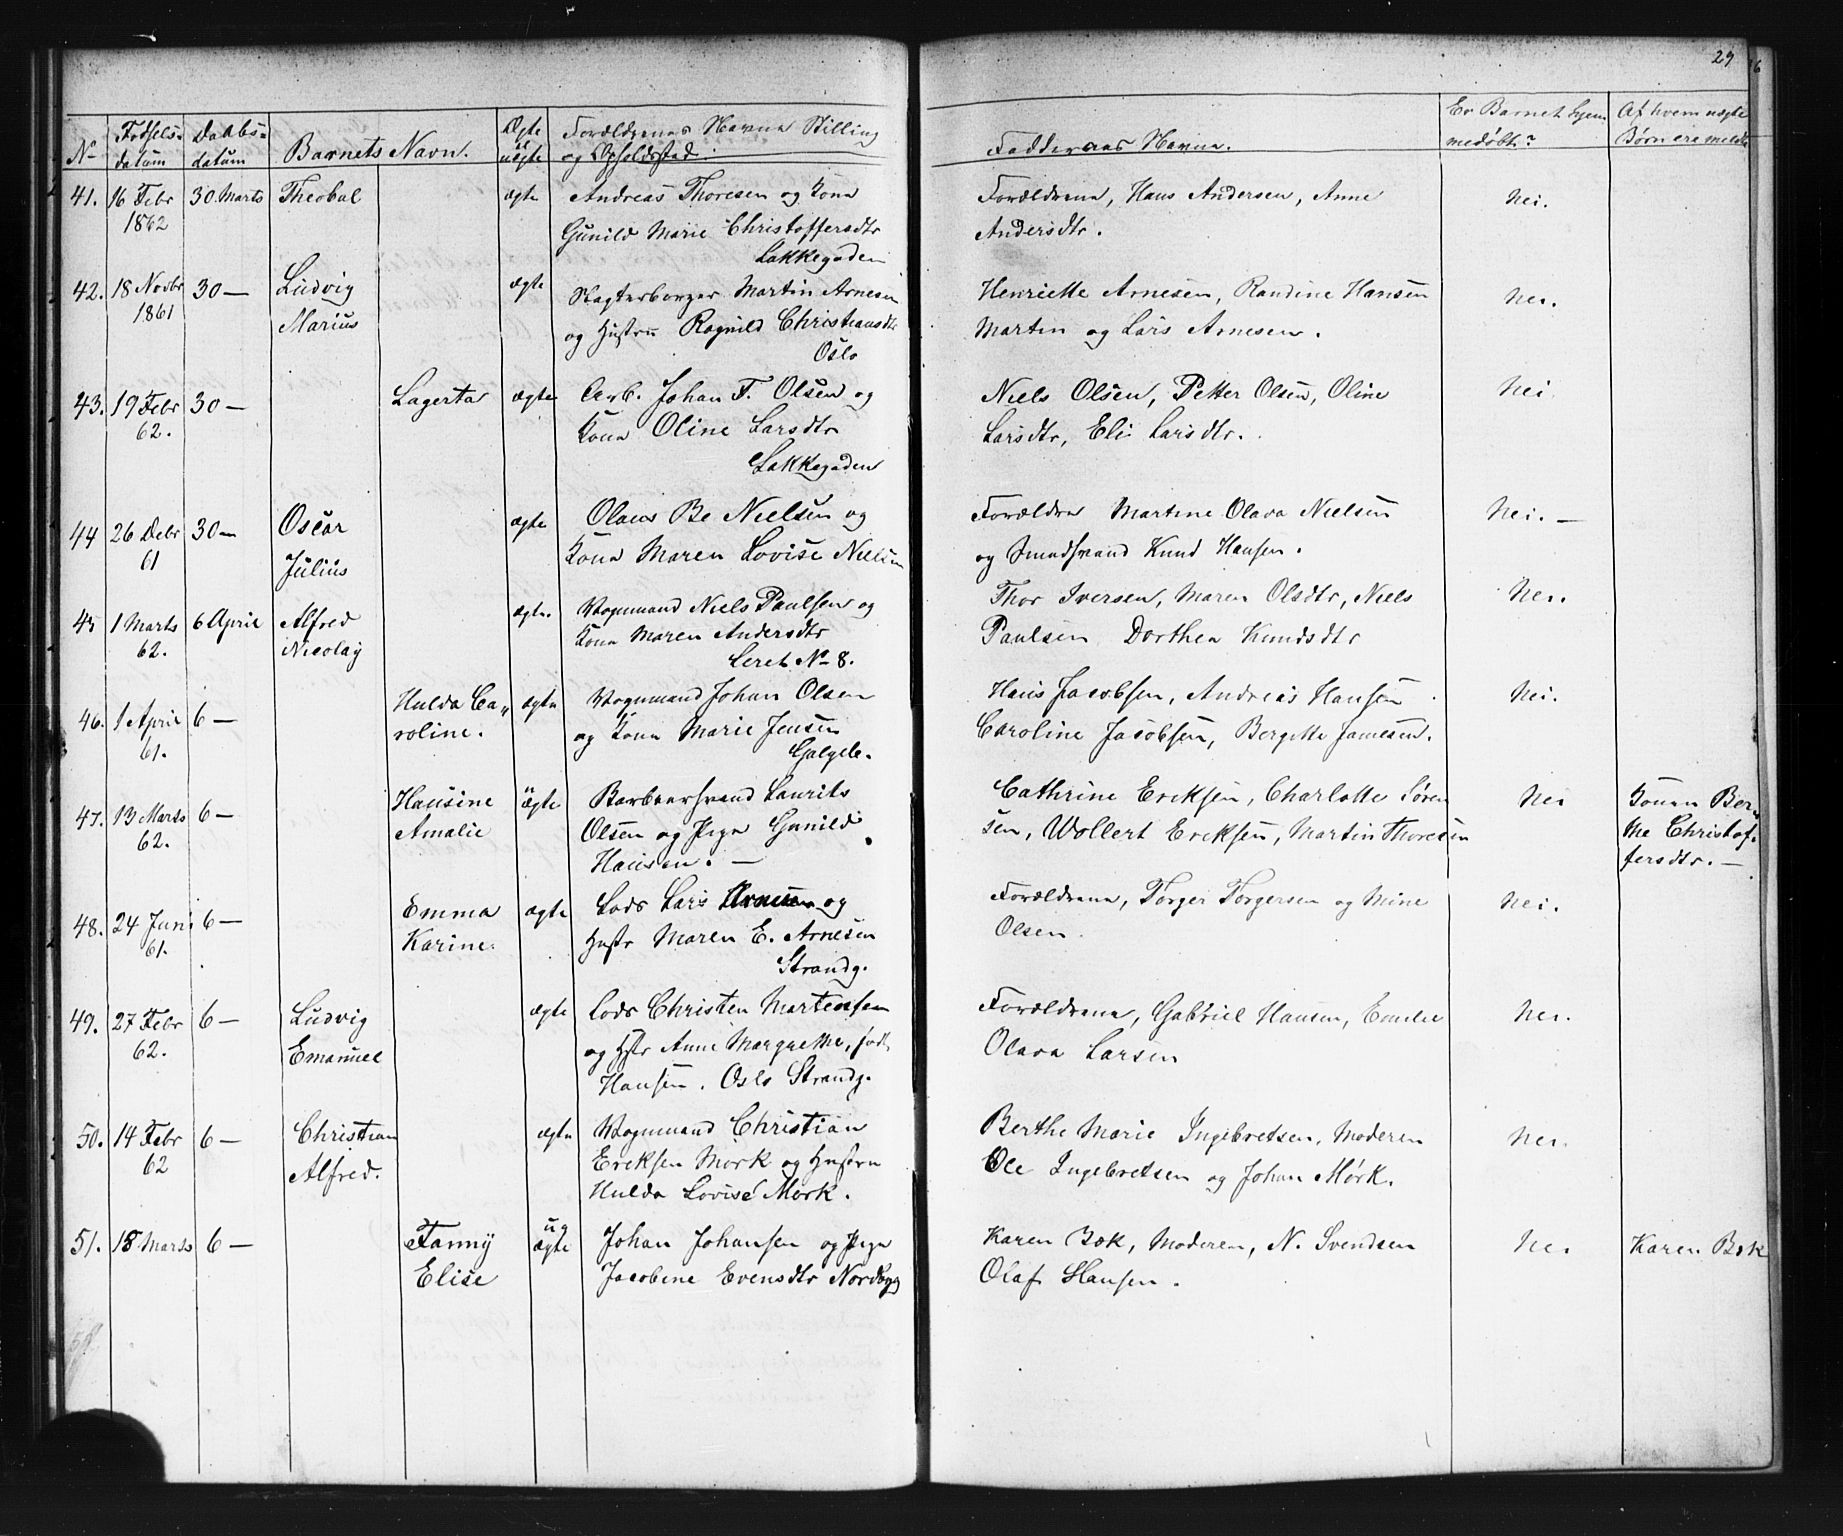 29
No
Fødsels-
datum
Daabs-
datum
Barnets Navn.
Ægte
el
uægte
Forældrenes Navne Stilling
og Opholdssted.
Faddernes Navne.
Er Barnet hjem
medøbt?
Af hvem uægte
Børn ere meldte
41. 16 Febr 30 Marts Theobal ægte Andreas Thoresen og Kone Forældrene, Hans Andersen, Anne Nei.
1862 Gunild Marie Christoffersdtr Andersdtr.
Lakkegaden
42. 18 Novbr 30 — Ludvig ægte Slagterborger Martin Arnesen Henriette Arnesen, Randine Hansen Nei.
1861 Marius og Hustru Ragnild Christiansdtr Martin og Lars Arnesen.
Oslo
43. 19 Febr 30 — Lagerta ægte Arb. Johan F. Olsen og Niels Olsen, Petter Olsen, Oline Nei
62. Kone Oline Larsdtr Larsdtr, Eli Larsdtr.
Lakkegaden
44 26 Debr 30 — Oscar ægte Olaus Be Nielsen og Forældre Martine Olava Nielsen Nei. —
61 Julius Kone Maren Lovise Nielsen og Smedsvend Knud Hansen.
45 1 Marts 6 April Alfred ægte. Vognmand Niels Paulsen og Thor Iversen, Maren Olsdtr, Niels Nei.
62. Nicolay Kone Maren Andersdtr Paulsen Dorthea Knudsdtr
Leret No 8.
46. 1 April 6 — Hulda Ca„ ægte Vognmand Johan Olsen Hans Jacobsen, Andreas Hansen Nei.
61. roline. og Kone Marie Jensen Caroline Jacobsen, Bergitte Jamesen.
Galgeb.
47. 13 Marts 6 — Hansine uægte Barbeersvend Laurits Cathrine Eriksen, Charlotte Søren Nei Konen Ber
62. Amalie Olsen og Pige Gunild sen, Wollert Eriksen, Martin Thoresen the Christof-
Hansen. — fersdtr. —
48. 24 Juni 6 — Emma ægte Lods Lars Arnesen og Forældrene, Torger Torgersen og Mine Nei.
61. Karine. Hustr Maren E. Arnesen Olsen
Strandg.
49. 27 Febr 6 — Ludvig ægte Lods Christen Martensen Forældrene, Gabriel Hansen, Emilie Nei.
62. Emanuel og Hstr Anne Margrethe, født Olava Larsen
Hansen. Oslo Strandg.
50. 14 Febr 6 — Christian ægte Vognmand Christian Berthe Marie Ingebretsen, Moderen Nei.
62 Alfred. Eriksen Mørk og Hustru Ole Ingebretsen og Johan Mørk.
Hulda Lovise Mørk.
51. 18 Marts 6 — Fanny uægte Johan Johansen og Pige Karen Bok, Moderen, N. Svendsen Nei Karen Bok
Elise Jacobine Evensdtr Nordbyg Olaf Hansen.